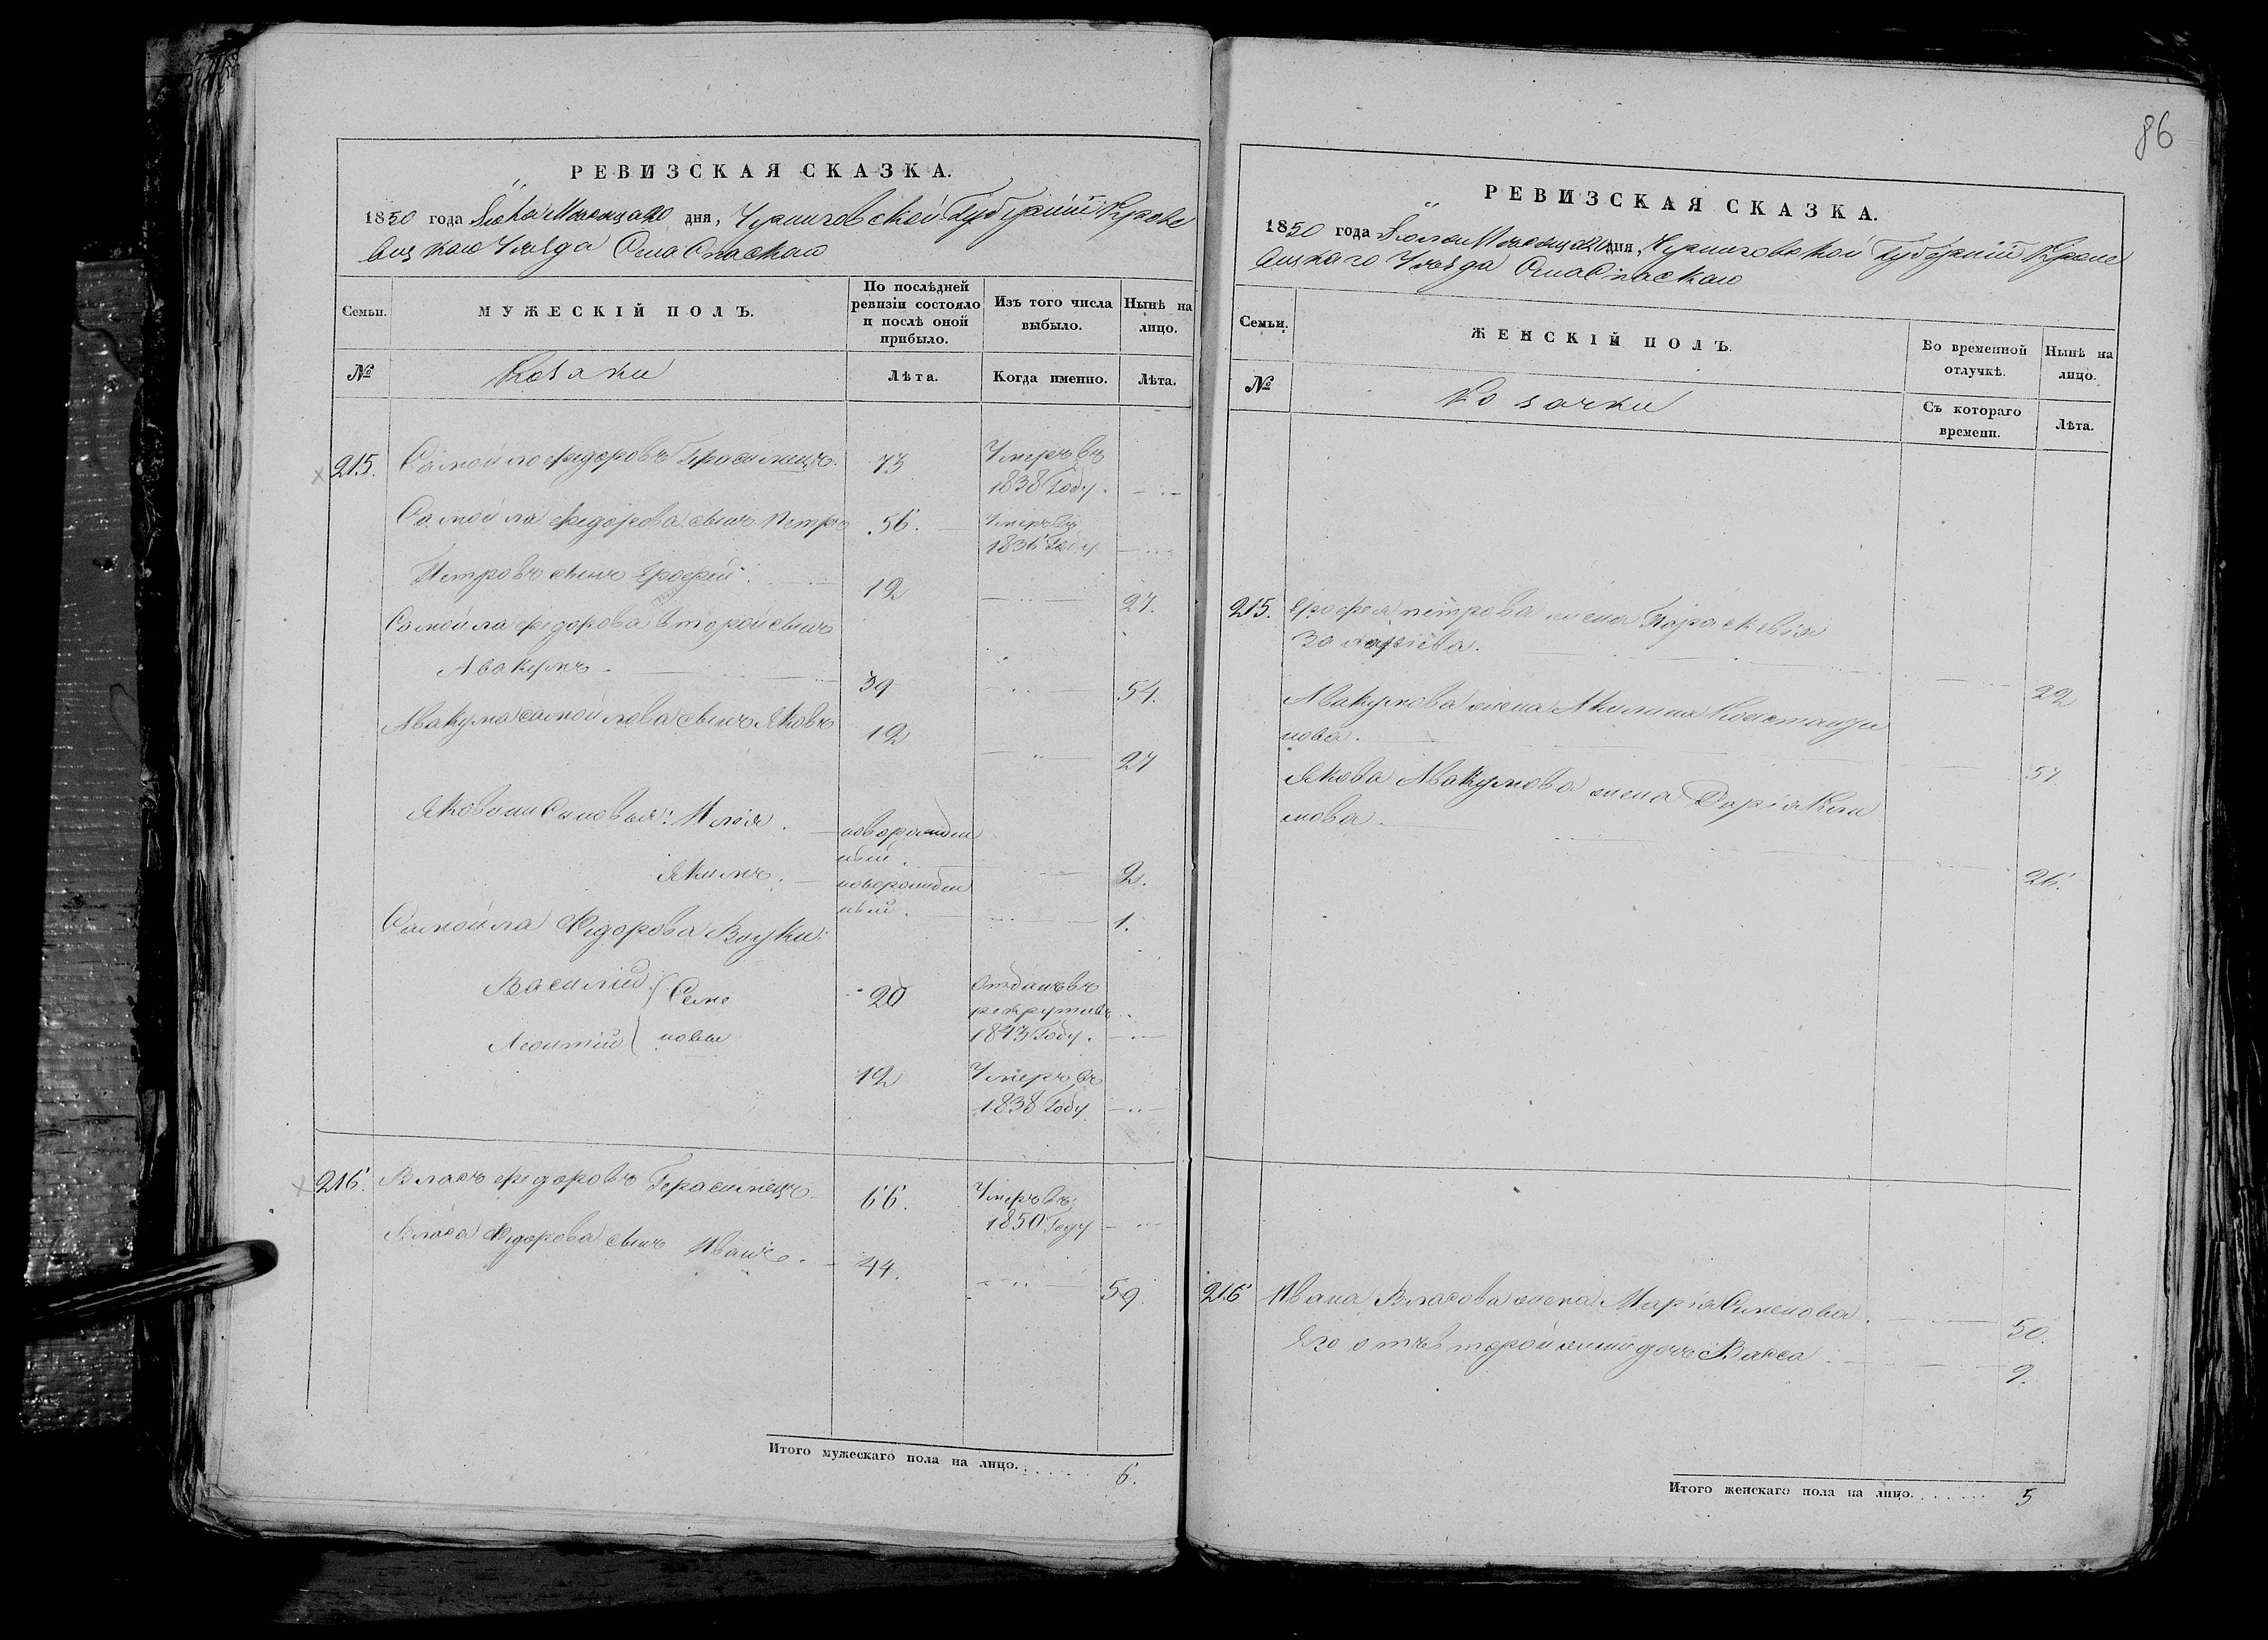 РЕВИЗСКАЯ СКАЗКА.
1850 года Іюля Месяца 20 дня, Черниговской Губерніи Кроле
вецкаго Уезда Села Спаскаго
Семьи.
МУЖЕСКІЙ ПОЛЪ.
По послѣдней ревизіи состояло и послѣ оной прибыло.
Изъ того числа выбыло.
Нынѣ на лицо.
№
Козаки
Лѣта.
Когда именно.
Лѣта.
215. Самойло Федоровъ Герасимецъ. 73 Умеръ въ
1838 Году.
Самойла Федорова сынъ Петръ 56. Умеръ въ
1836 Году
Петровъ сынъ Ерофей. 12 27.
Самойла Федорова второй сынъ
Авакумъ 39 54.
Авакума Самойлова сынъ Яковъ 12 27
Якова Сыновья: Илья. новорожден
ный. 2.
Якимъ. новорожден
ный. 1.
Самойла Федорова Внуки:
Василій Семе 20 Отданъ въ
рекруты въ
1843 Году.
Леонтій новы
12 Умеръ въ
1838 Году
216. Власъ Федоровъ Герасимецъ 66. Умеръ въ
1850 Году
Власа Федорова сынъ Иванъ. 44. 59.
Итого мужескаго пола на лицо. 6.
86
РЕВИЗСКАЯ СКАЗКА.
1850 года Іюля Месяца 20 дня, Черниговской Губерніи Кроле
вецкаго Уезда Села Спаскаго
Семьи.
ЖЕНСКІЙ ПОЛЪ.
Во временной отлучкѣ.
Нынѣ на лицо.
№
Козачки
Съ котораго времени.
Лѣта.
215. Ерофея Петрова жена Параскевія
22
Авакумова жена Акилина Константи
нова. 57.
Якова Авакумова жена Дарія Кли
мова. 26.
216 Ивана Власова жена Марія Семенова. 50.
Его отъ второй жены дочь Васса 9.
Итого женскаго пола на лицо. 5